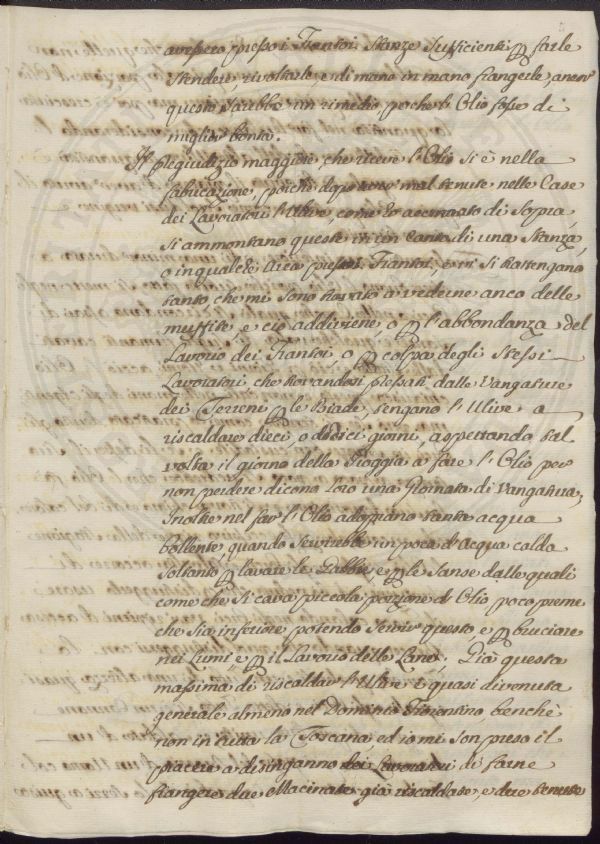 avessero presso i Frantoi Stanze Sufficienti p farle
Stendere, rivoltarle, e di mano in mano frangerle, anco
questo Sarebbe un rimedio perche l'Olio fosse di
miglior bontà.
Il Pregiudizio maggiore che riceve l'Olio Si è nella
fabricazione, poiche dopo mal tenute nelle Case
dei Lavoratori l'Ulive, come hò accennato di Sopra,
Si ammontano queste in un Canto di una Stanza,
o in qualche Arca presso i Frantoi, e vi Si trattengano
tanto che mi Sono trovato a vederne anco delle
muffite, e ciò addiviene, o p l'abbondanza del
Lavoro dei Frantoi, o p colpa degli Stessi
Lavoratori, che trovandosi pressati dalle Vangature
dei Terreni p le Biade, tengano l'Ulive a
riscaldare dieci, o dodici giorni, aspettando tal
volta il giorno della Pioggia a fare l'Olio per
non perdere dicono Loro una Giornata di Vangatura,
Inoltre nel far l'Olio adoprano tanta acqua
bollente, quando Servirebbe un poca d'Acqua calda
Soltanto p lavare le Gabbie, e p le Sanse dalle quali
come che Si cava piccola porzione d'Olio, poco preme
che Sia inferiore potendo Servir questo, e p bruciare
nei Lumi, e p il Lavoro delle Lane; Già questa
massima di riscaldar l'Ulive è quasi divenuta
generale almeno nel Dominio Fiorentino, benchè
non in tutta la Toscana, ed io mi Son preso il
piacere a disinganno dei Lavoratori di farne
frangere due Macinate già riscaldate, e due tenute